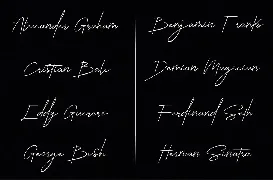 Alexander Graham
Cristian Bale
Eddy Guerre
George Bush
Benjamin Frank
Damian
Ferdinand Seth
Herman Sinatra